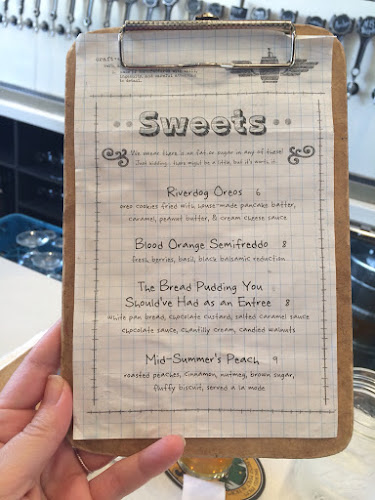 Sweets
We swear there is no fat or sugar in any of these!
Just kidding... there might be a little, but it's worth it.
Riverdog Oreos 6
oreo cookies fried with house-made pancake batter,
caramel, peanut butter, & cream cheese sauce
Blood Orange Semifreddo 8
fresh berries, basil, black balsamic reduction
The Bread Pudding You
Should've Had as an Entree 8
white pan bread, chocolate custard, salted caramel sauce
chocolate sauce, chantilly cream, candied walnuts
Mid-Summer's Peach 9
roasted peaches, cinnamon, nutmeg, brown sugar,
fluffy biscuit, served a la mode